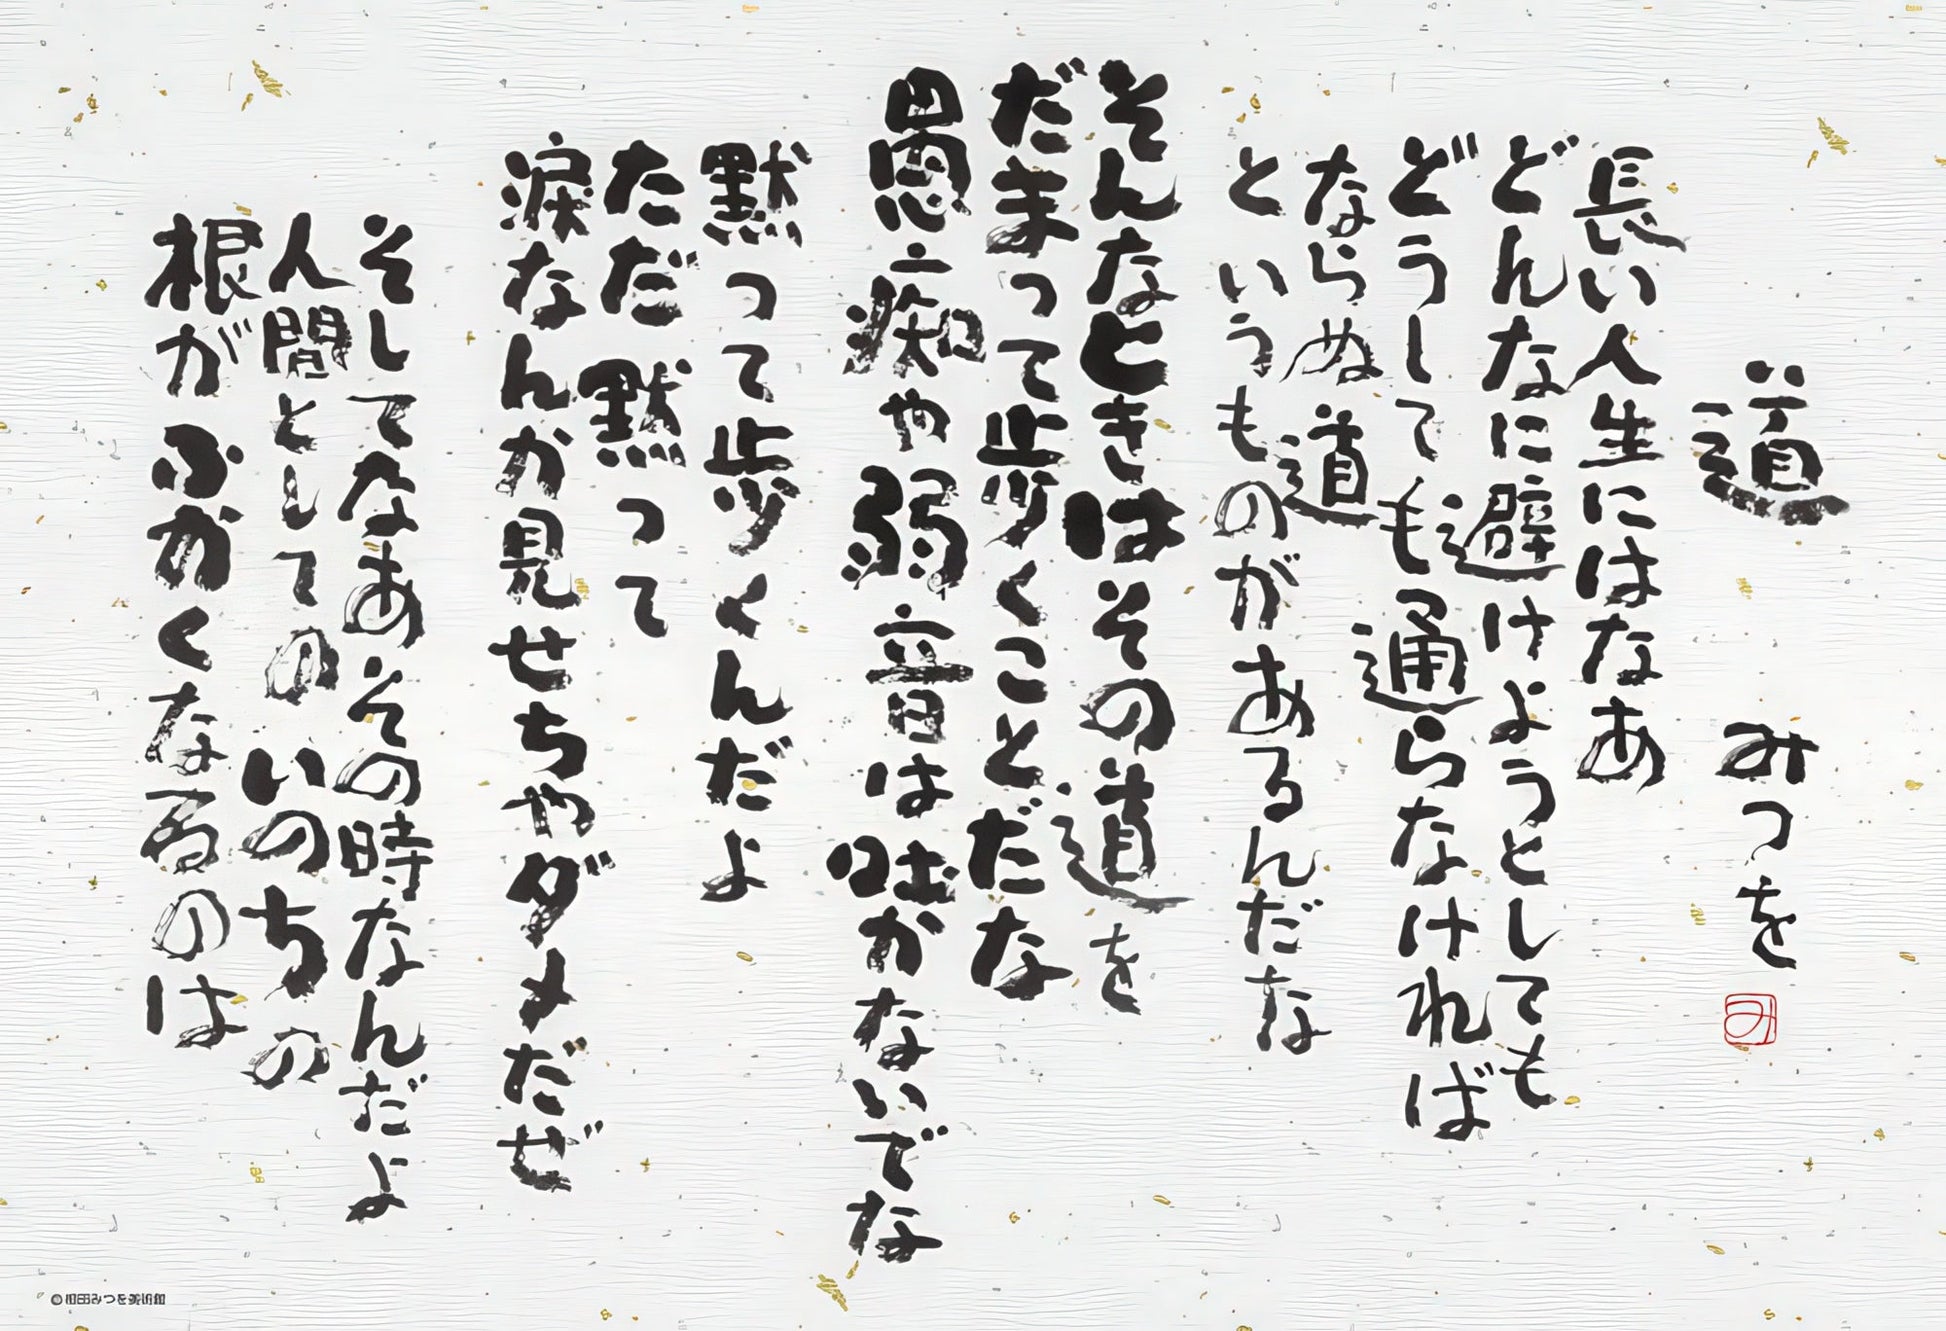 道
みつを
み
長い人生にはなあ
どんなに避けようとしても
どうしても通らなければ
ならぬ道
というものがあるんだな
そんなときはその道を
だまって歩くことだな
愚痴や弱音は吐かないでな
黙って歩くんだよ
ただ黙って
涙なんか見せちゃダメだぜ
そしてなあその時なんだよ
人間としてのいのちの
根がふかくなるのは
©相田みつを美術館